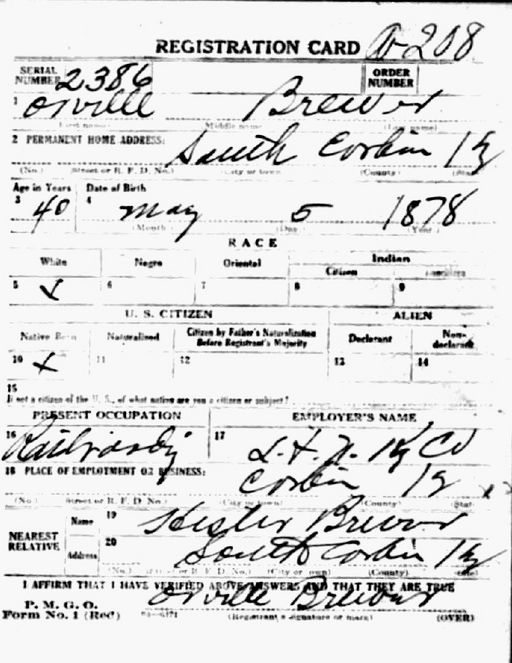 REGISTRATION CARD A-208
SERIAL NUMBER 2386 ORDER NUMBER
1 Orville Brewer
(First name) (Middle name) (Last name)
2 PERMANENT HOME ADDRESS:
South Corbin Ky
(No.) (Street or R. F. D. No.) (City or town) (County) (State)
Age in Years Date of Birth
3 40 4 May 5 1878
(Month) (Day) (Year)
RACE
White Negro Oriental Indian
Citizen Noncitizen
5 X 6 7 8 9
U. S. CITIZEN ALIEN
Native Born Naturalized Citizen by Father's Naturalization Before Registrant's Majority Declarant Non-declarant
10 X 11 12 13 14
15
If not a citizen of the U. S., of what nation are you a citizen or subject?
PRESENT OCCUPATION EMPLOYER'S NAME
16 17 L. & N. Ry Co
18 PLACE OF EMPLOYMENT OR BUSINESS:
Corbin Ky
(No.) (Street or R. F. D. No.) (City or town) (County) (State)
NEAREST RELATIVE Name 19 Hester Brewer
Address 20 South Corbin Ky
(No.) (Street or R. F. D. No.) (City or town) (County) (State)
I AFFIRM THAT I HAVE VERIFIED ABOVE ANSWERS AND THAT THEY ARE TRUE
P. M. G. O.
Form No. 1 (Red) Orville Brewer
(Registrant's signature or mark) (OVER)